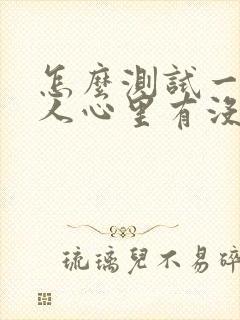 怎麼測試一
人心里有沒
琉璃兒不易碎